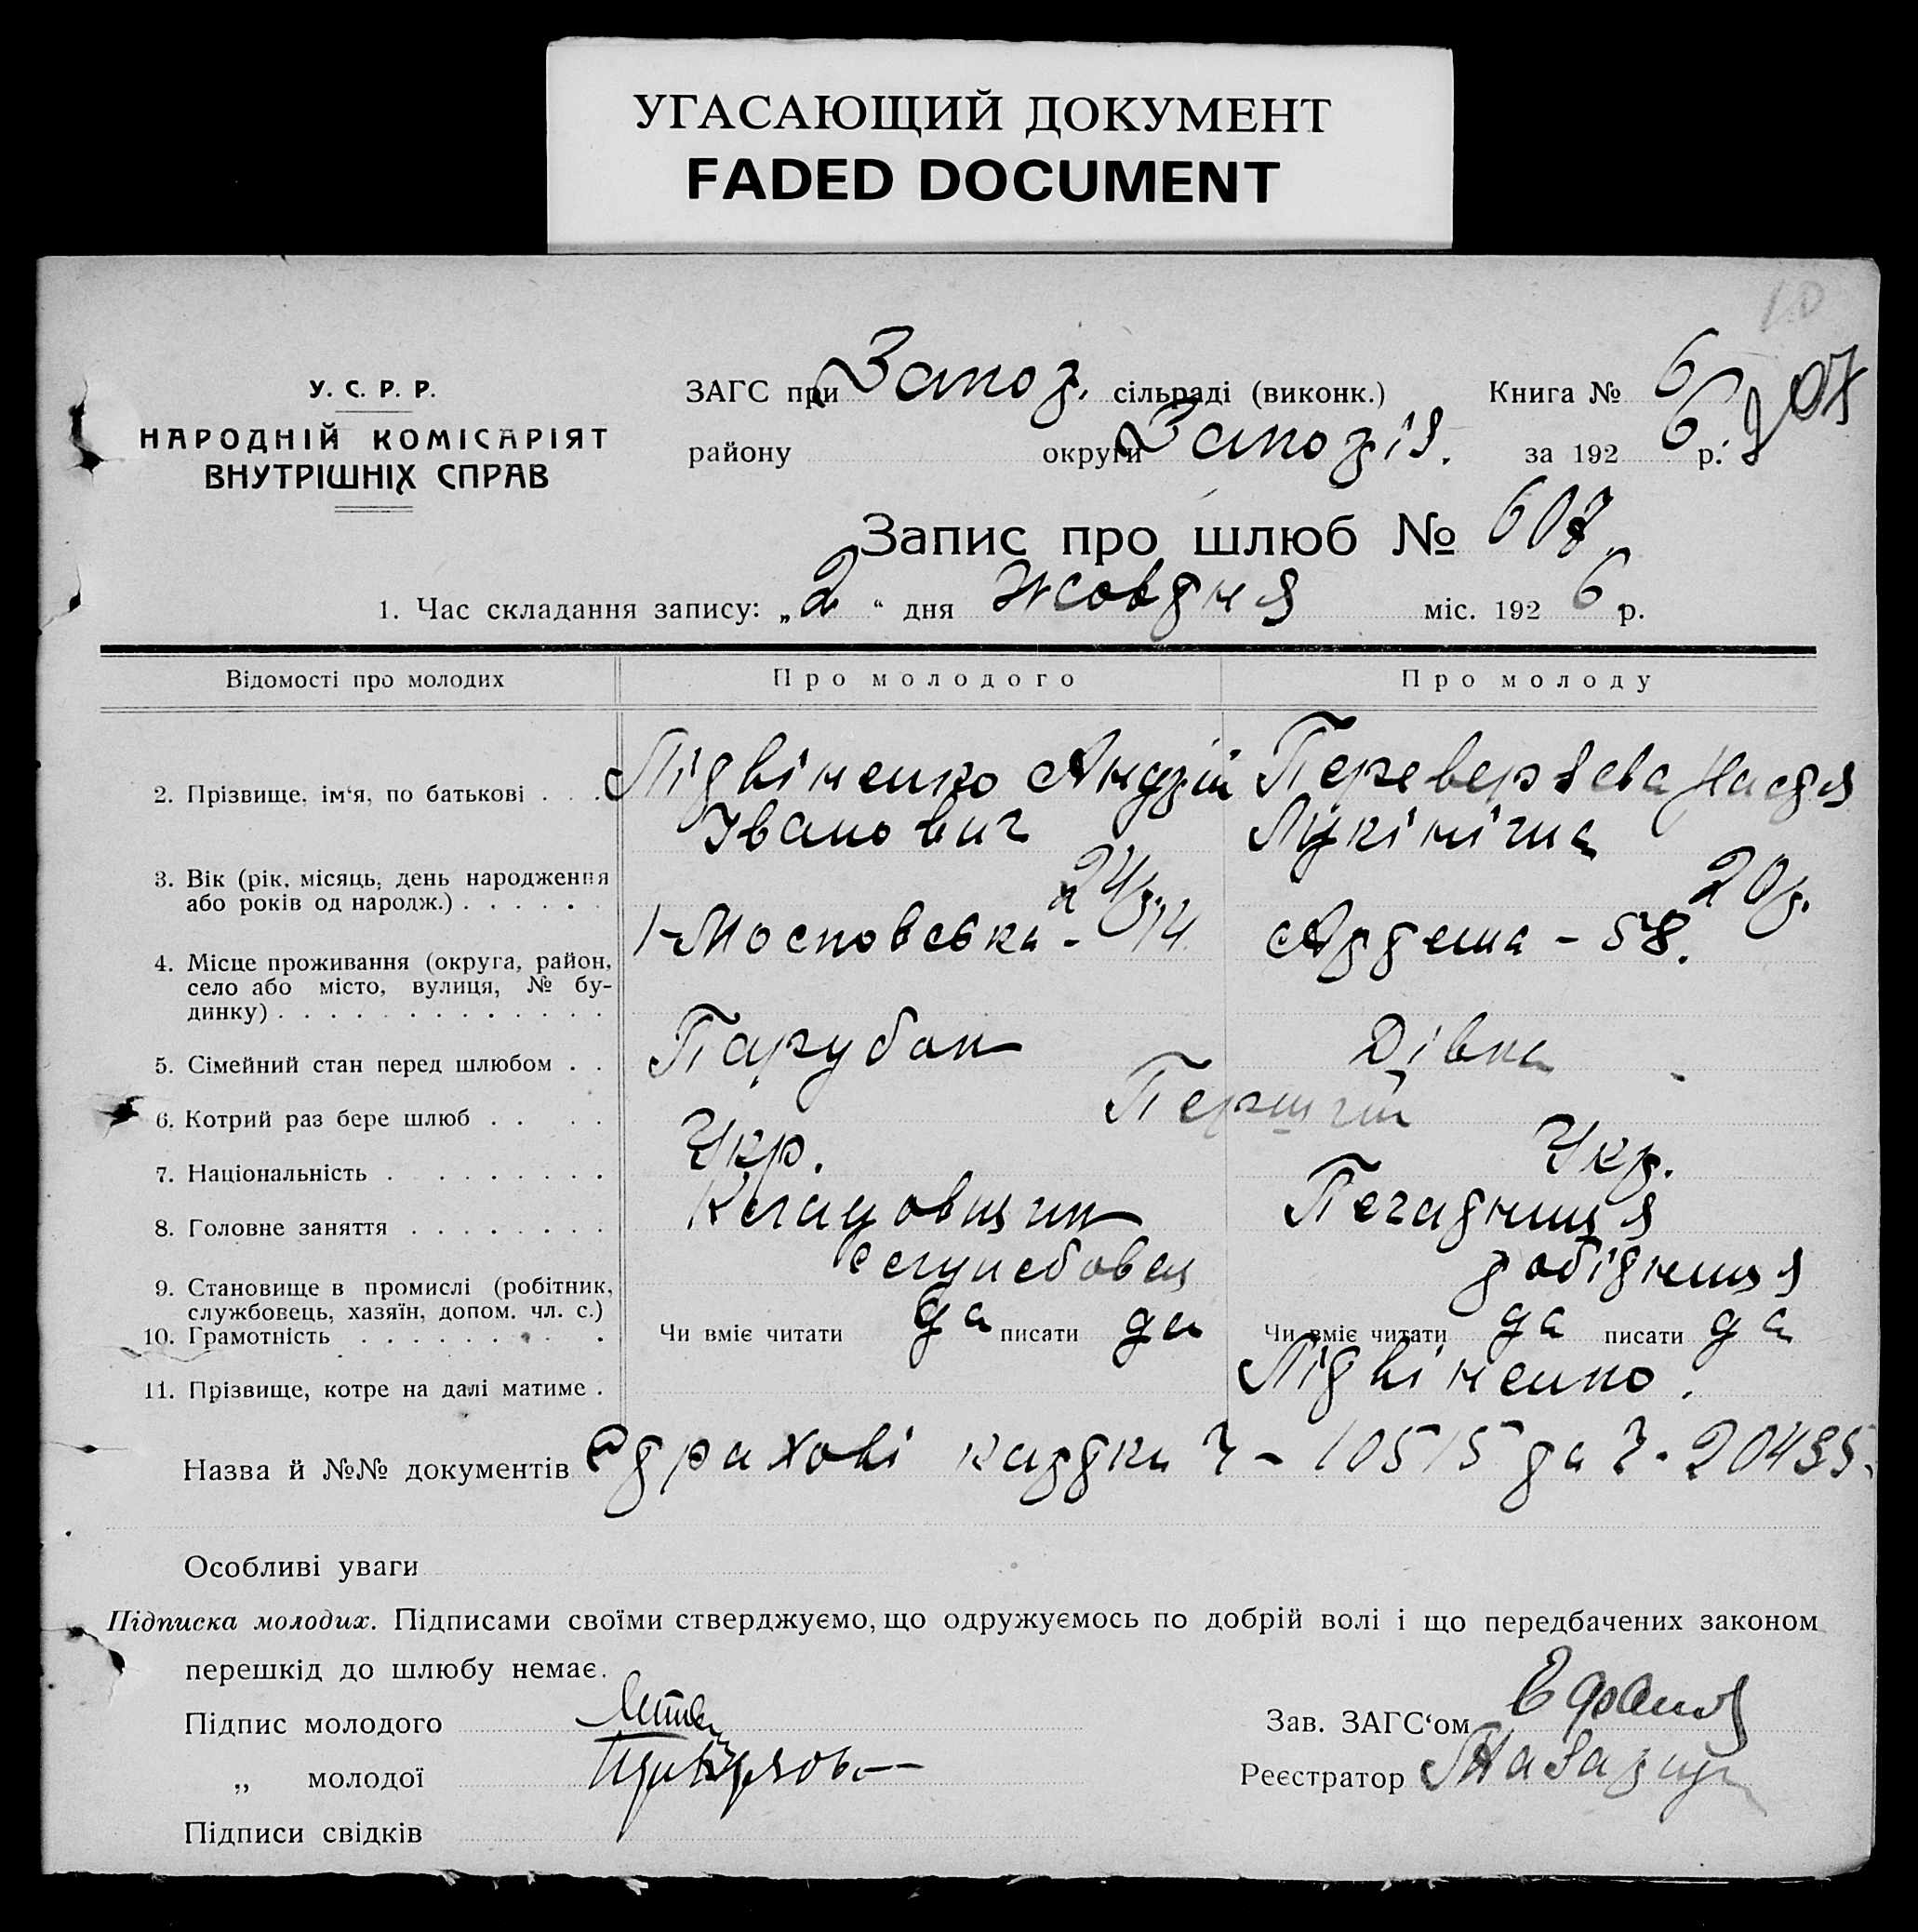 УГАСАЮЩИЙ ДОКУМЕНТ
FADED DOCUMENT
10
У. С. Р. Р.
НАРОДНІЙ КОМІСАРІЯТ
ВНУТРІШНІХ СПРАВ
ЗАГС при Запор. сільраді (виконк.) Книга № 6
району округи Запоріз. за 192 6 р.
Запис про шлюб № 607
1. Час складання запису: „2“ дня Жовтня міс. 192 6 р.
Відомості про молодих Про молодого Про молоду
2. Прізвище, ім‘я, по батькові . . . Літвіненко Андрій Переверзєва Настя
Іванович Лукінічна
3. Вік (рік, місяць, день народження 24 р. 20 р.
або років од народж.) . . . . . .
4. Місце проживання (округа, район, Московська - 14. Артема - 58.
село або місто, вулиця, № бу-
динку) . . . . . . . . . . . . .
5. Сімейний стан перед шлюбом . . Парубок Дівка
6. Котрий раз бере шлюб . . . . Перший
7. Національність . . . . . . . . Укр. Укр.
8. Головне заняття . . . . . . . . Кладовщик Печатниця
9. Становище в промислі (робітник, службовець робітниця
службовець, хазяїн, допом. чл. с.)
10. Грамотність . . . . . . . . . Чи вміє читати да писати да Чи вміє читати да писати да
11. Прізвище, котре на далі матиме . Літвіненко.
Назва й №№ документів страхові картки Ч - 10515 та Ч - 20435.
Особливі уваги
Підписка молодих. Підписами своїми стверджуємо, що одружуємось по добрій волі і що передбачених законом
перешкід до шлюбу немає.
Підпис молодого Зав. ЗАГС‘ом
„ молодої Реєстратор
Підписи свідків